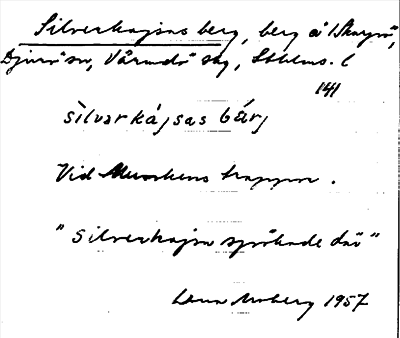 Silverkajsas berg, berg å Skarpö,
Djurö sn, Värmdö sklg, Sthlms. l
141
silvarkájsas bárj
Vid Munkens trappor.
"Silverkajsa spökade där"
Lena Moberg 1957